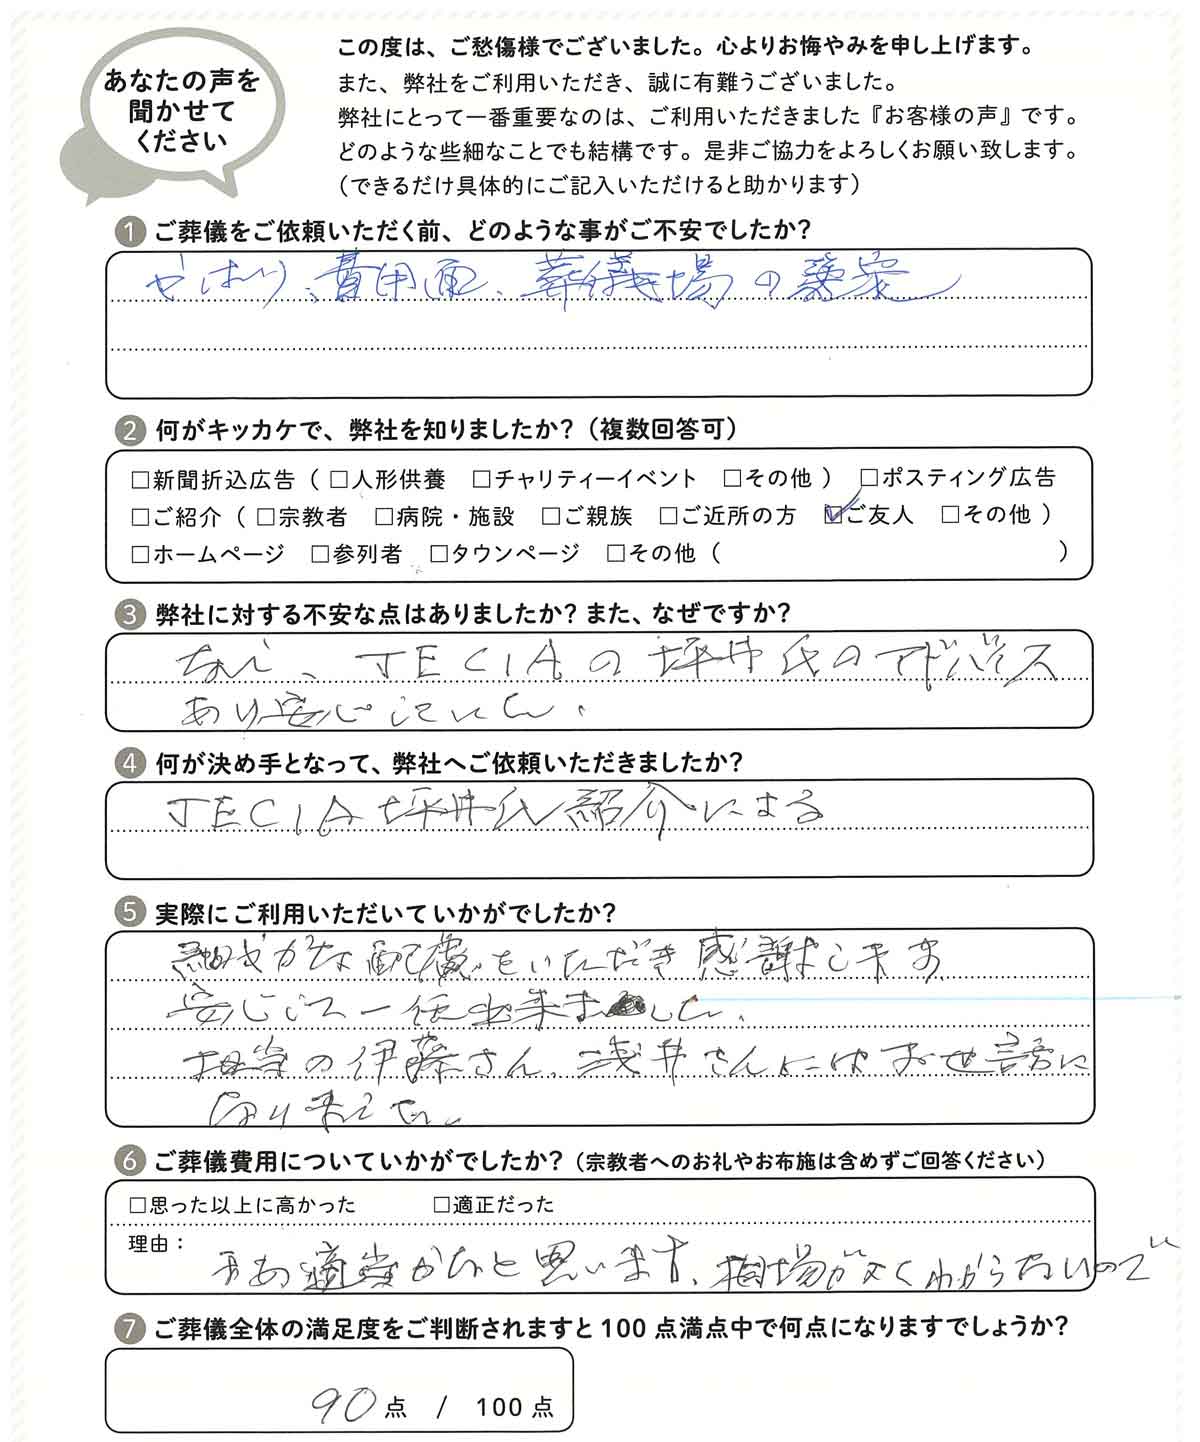 あなたの声を
聞かせて
ください
この度は、ご愁傷様でございました。心よりお悔やみを申し上げます。
また、弊社をご利用いただき、誠に有難うございました。
弊社にとって一番重要なのは、ご利用いただきました『お客様の声』です。
どのような些細なことでも結構です。是非ご協力をよろしくお願い致します。
（できるだけ具体的にご記入いただけると助かります）
1 ご葬儀をご依頼いただく前、どのような事がご不安でしたか？
やはり、費用面、葬儀場の
2 何がキッカケで、弊社を知りましたか？（複数回答可）
□新聞折込広告（ □人形供養 □チャリティーイベント □その他 ） □ポスティング広告
□ご紹介（ □宗教者 □病院・施設 □ご親族 □ご近所の方 ☑ご友人 □その他 ）
□ホームページ □参列者 □タウンページ □その他（ ）
3 弊社に対する不安な点はありましたか？また、なぜですか？
なし、JECIAの坪井氏のアドバイス
あり安心していた。
4 何が決め手となって、弊社へご依頼いただきましたか？
JECIA坪井氏紹介による
5 実際にご利用いただいていかがでしたか？
細やかな配慮をいただき感謝します
安心して一任出来ました。
担当の伊藤さん、浅井さんにはお世話に
なりました。
6 ご葬儀費用についていかがでしたか？（宗教者へのお礼やお布施は含めずご回答ください）
□思った以上に高かった □適正だった
理由：
まあ適当かなと思います、相場がよくわからないので
7 ご葬儀全体の満足度をご判断されますと100点満点中で何点になりますでしょうか？
90点 / 100点